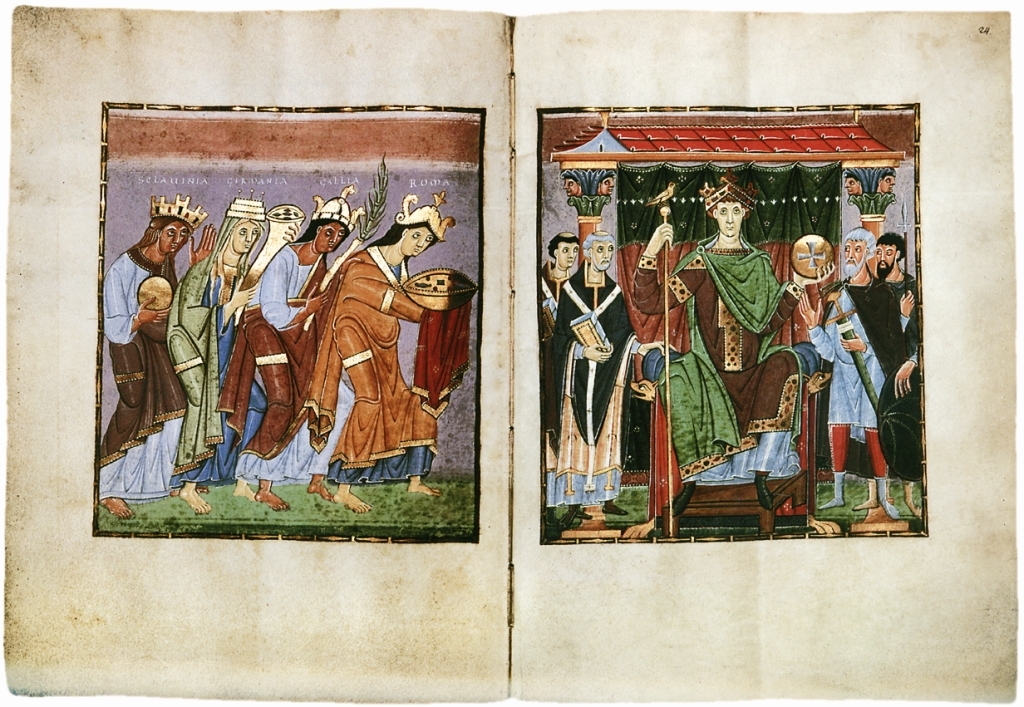 SCLAUINIA GERMANIA GALLIA ROMA
24.